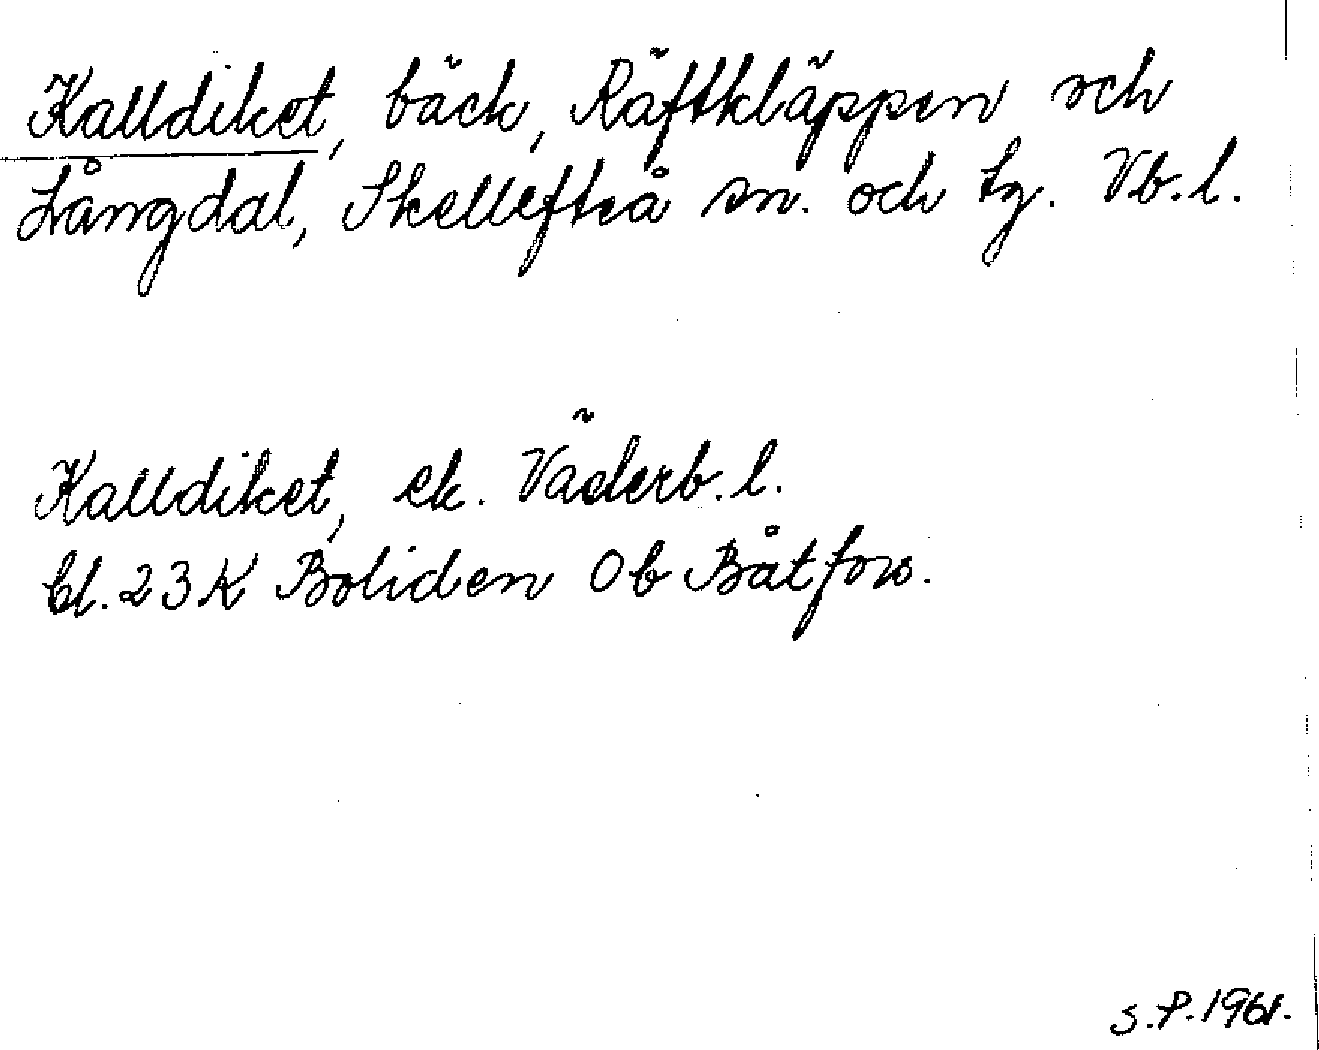 Kalldiket, bäck, Räftkläppen och
Långdal, Skellefteå sn. och tg. Vb. l.
Kalldiket, ek. Väderb. l.
bl. 23 K Boliden Ob Båtfors.
S.P. 1961.